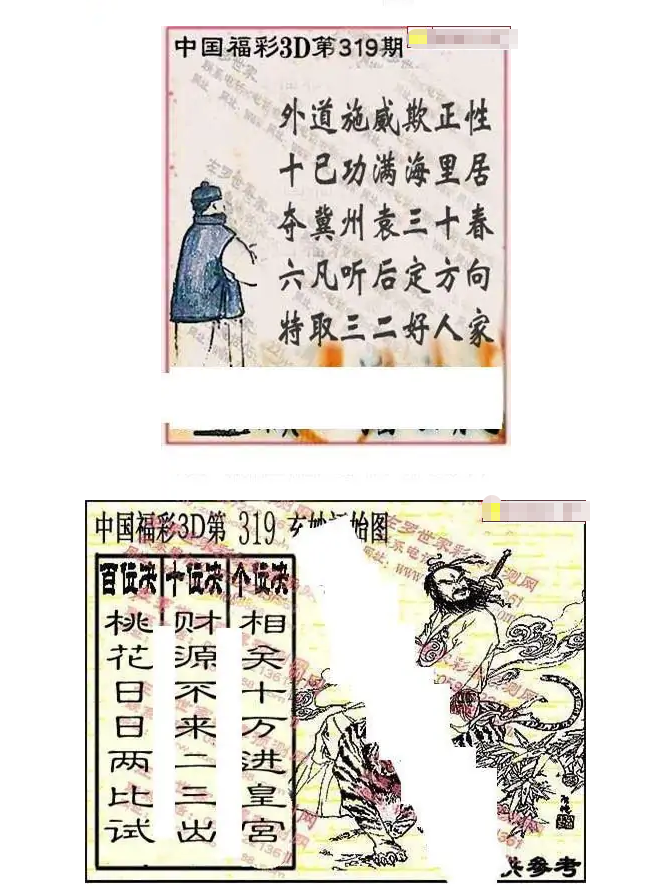 中国福彩3D第319期
外道施威欺正性
十已功满海里居
夺冀州袁三十春
六凡听后定方向
特取三二好人家
中国福彩3D第 319 玄妙 始图
百位决 十位决 个位决
桃花日日两比试
财源不来二三出
相关十万进皇宫
参考